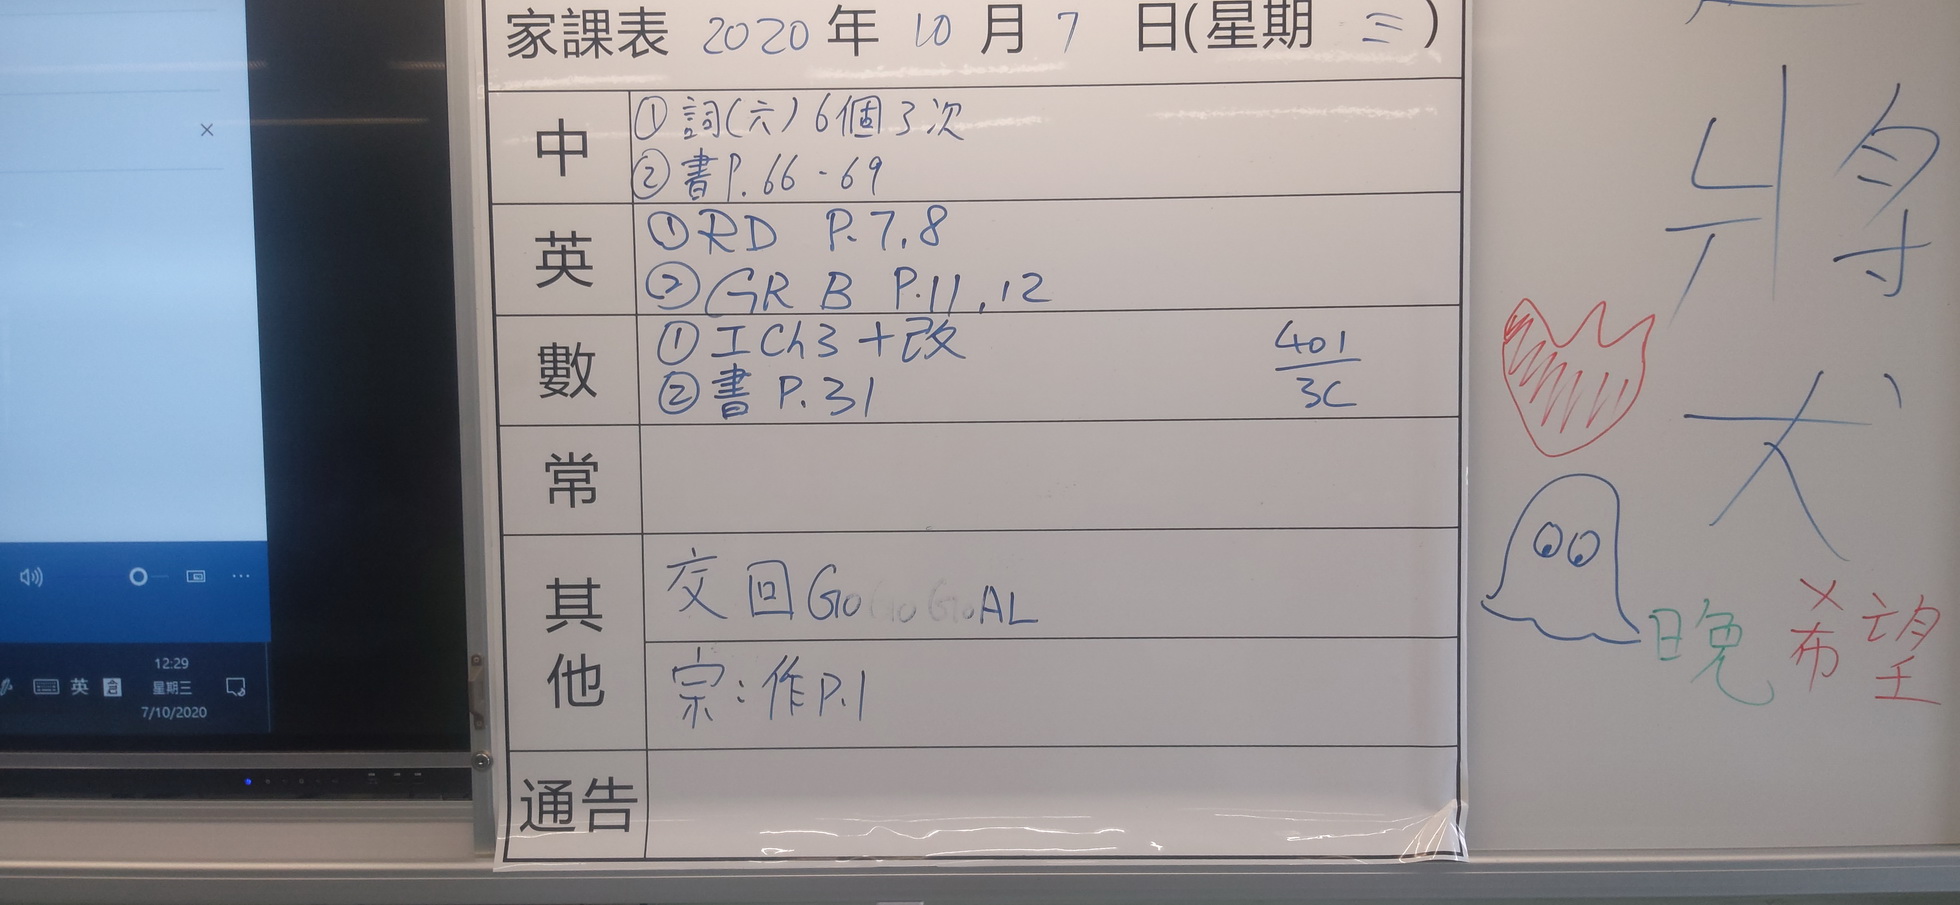 家課表 2020 年 10 月 7 日(星期 三)
中
① 詞(六) 6個3次
② 書P.66-69
英
① RD P.7,8
② GR B P.11,12
數
① 工Ch3+改
② 書 P.31
401
3C
常
其他
交回GoGoGoAL
宗:作P.1
通告
12:29
英
星期三
7/10/2020
將
犬
晚
希望